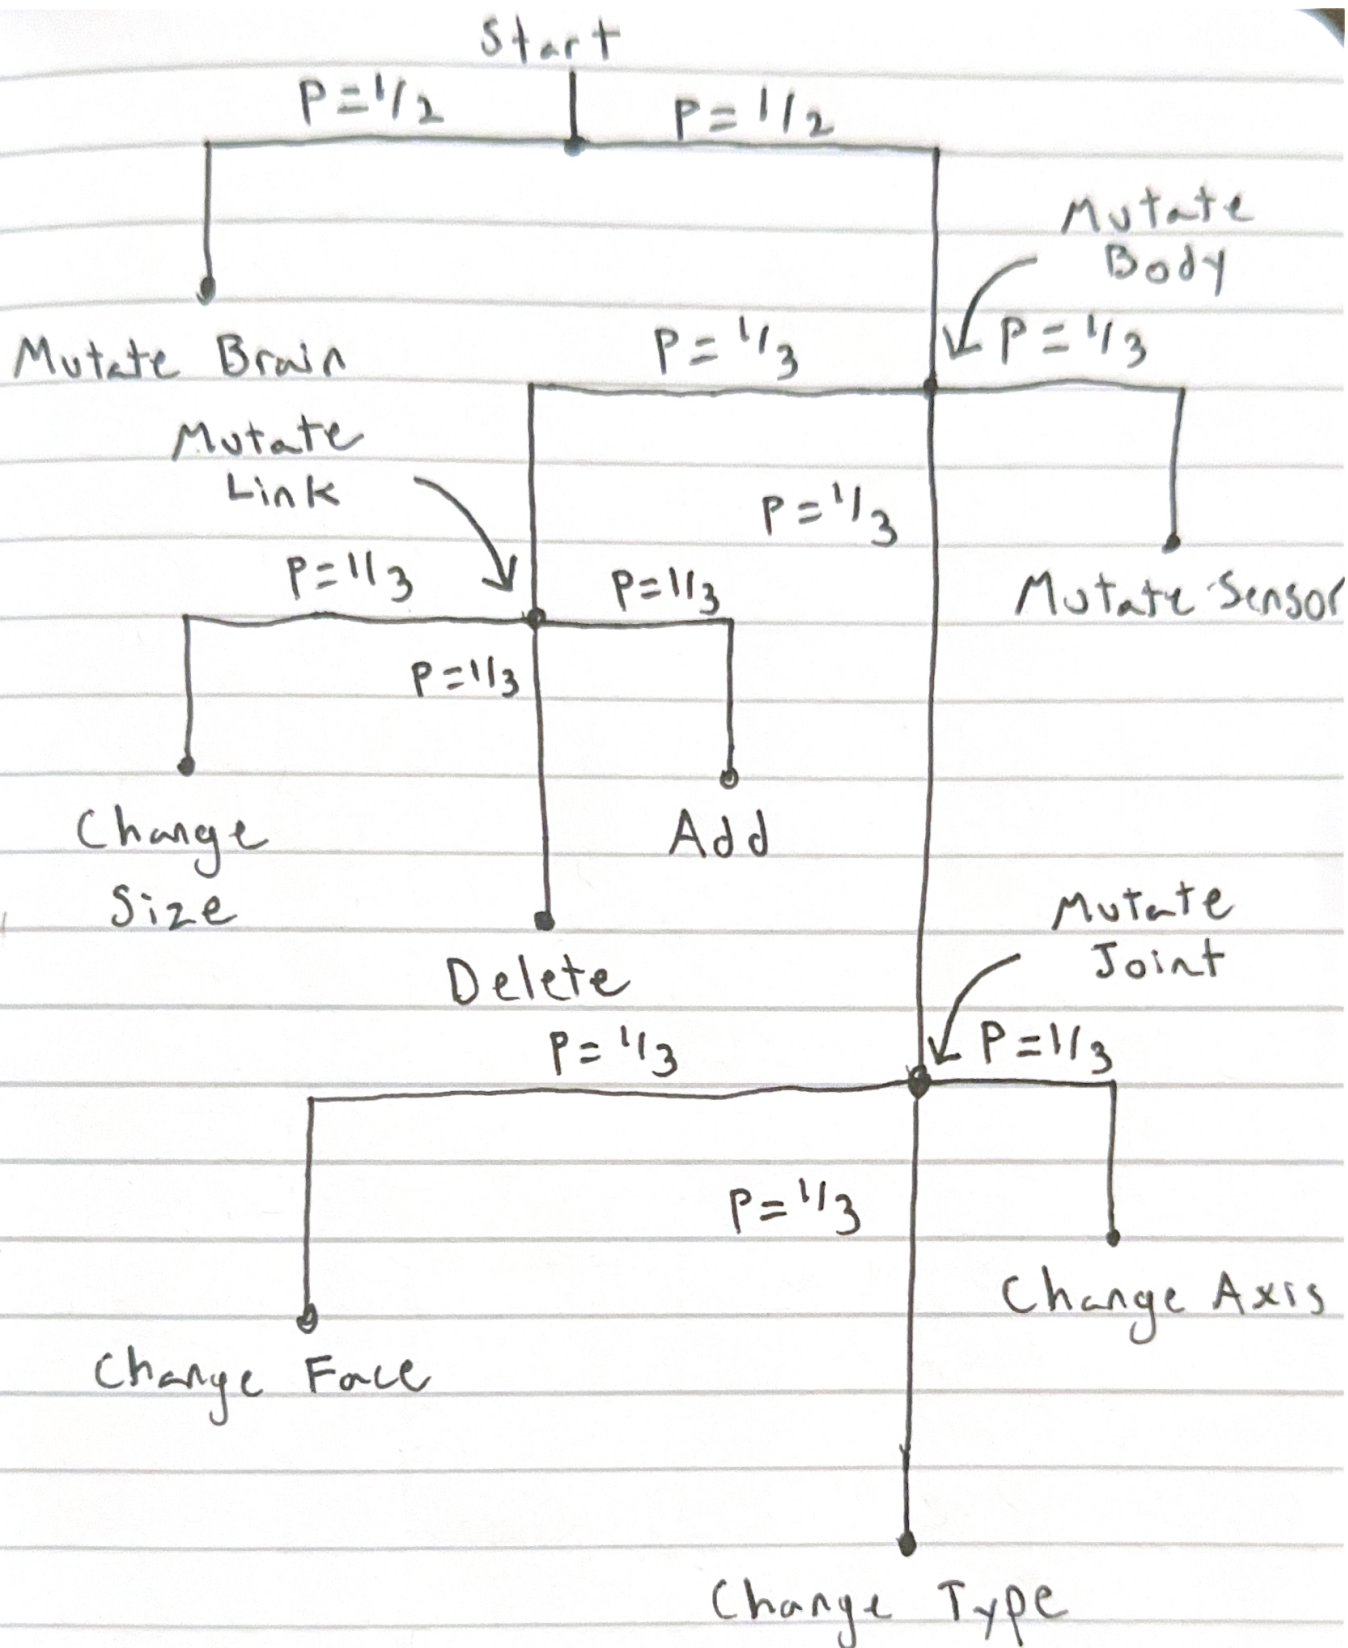 Start
P=1/2
P=1/2
Mutate
Body
P=1/3
P=1/3
Mutate Brain
Mutate
Link
P=1/3
P=1/3
P=1/3
Mutate Sensor
P=1/3
Change
Size
Add
Delete
Mutate
Joint
P=1/3
P=1/3
P=1/3
Change Axis
Change Face
Change Type